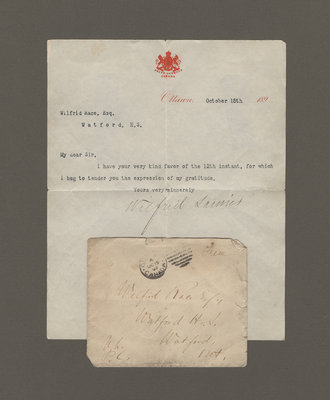 Ottawa, October 15th 189
Wilfrid Race, Esq.
Watford, H.S.
My dear Sir,
I have your very kind favor of the 12th instant, for which
I beg to tender you the expression of my gratitude.
Yours very sincerely
Wilfrid Laurier
Free
Wilfrid Race Esq
Watford H.S.
Watford
Ont.